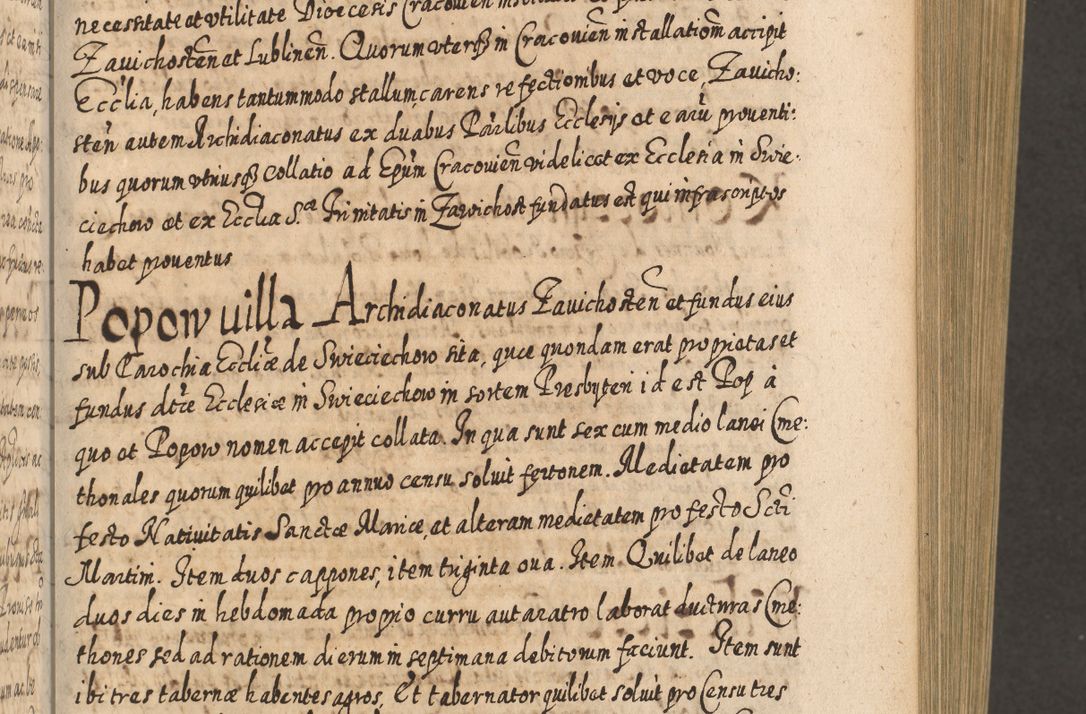 necessitate et vtilitate Dioecesis Cracouien
Zauichosten̄ et Lublinen̄. Quorum vterq3 in Cracouien̄ installatiom̄ accipit
Eccĺia, habens tantummodo stallum, carens refectionibus et voce, Zauicho:
sten̄ autem Archidiaconatus ex duabus Parlibus Ecclesijs et earū prouenti:
bus quorum vtriusq3 collatio ad Epūm Cracouien̄ videlicet ex Ecclesia in Swie:
ciechow et ex Ecclia S.ᶜᵉ Trinitatis in Zawichost fundatus est qui infrascriptos
habet prouentus
Popow uilla Archidiaconatus Zauichosten̄ et fundus eius
sub Parochia Eccliæ de Swieciechow sita, quæ quondam erat proprietas et
fundus dtæ Ecclesiæ in Swieciechow in sortem Presbyteri id est Pop à
quo et Popow nomen accepit collata. In qua sunt sex cum medio lanei Cme:
thonales quorum quilibet pro annuo censu soluit fertonem. Medietatem pro
festo Natiuitatis Sanctæ Mariæ, et alteram medietatem pro festo Scti
Martini. Item duos cappones, item triginta oua. Item Quilibet de laneo
duos dies in hebdomada proprio curru aut aratro laborat ducturas Cme:
thones sed ad rationem dierum in septimana debitorum faciunt. Item sunt
ibi tres tabernæ habentes agros, Et tabernator quilibet soluit pro Censu tres